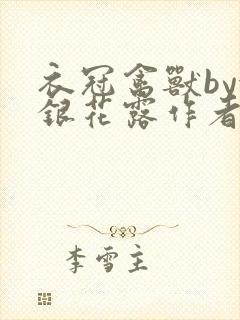 衣冠禽獸by
銀花露作者
李雪主